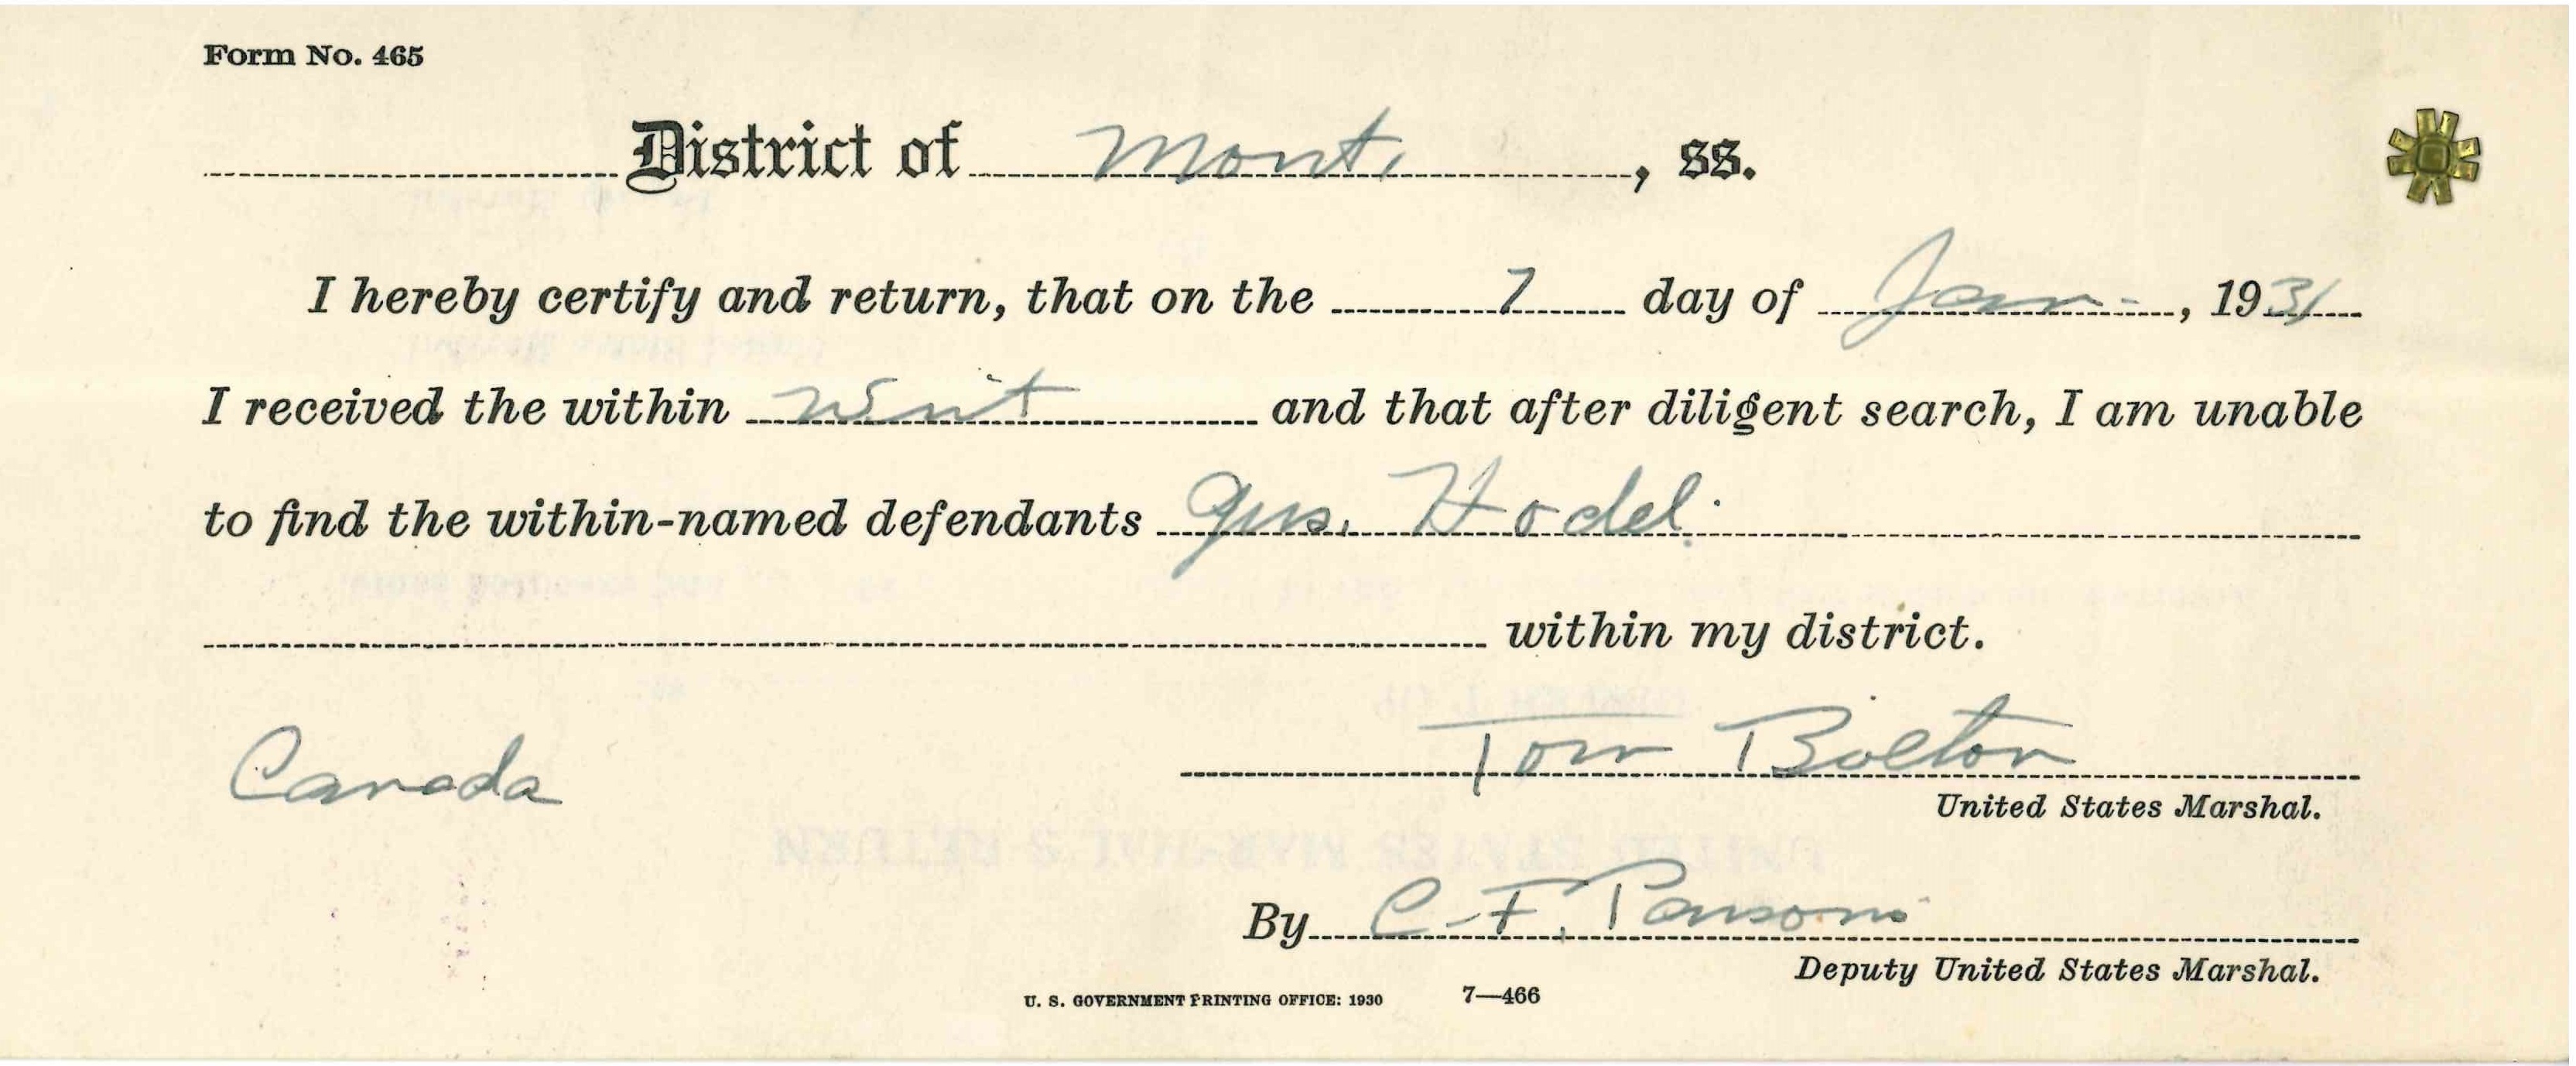 Form No. 465
District of Mont. , ss.
I hereby certify and return, that on the 7 day of Jan- , 1931
I received the within Writ and that after diligent search, I am unable
to find the within-named defendants Gus. Hodel.
within my district.
Canada
Tom Bolton
United States Marshal.
By C. F. Parsons
Deputy United States Marshal.
U. S. GOVERNMENT PRINTING OFFICE: 1930 7—466
UNITED STATES MARSHAL'S RETURN